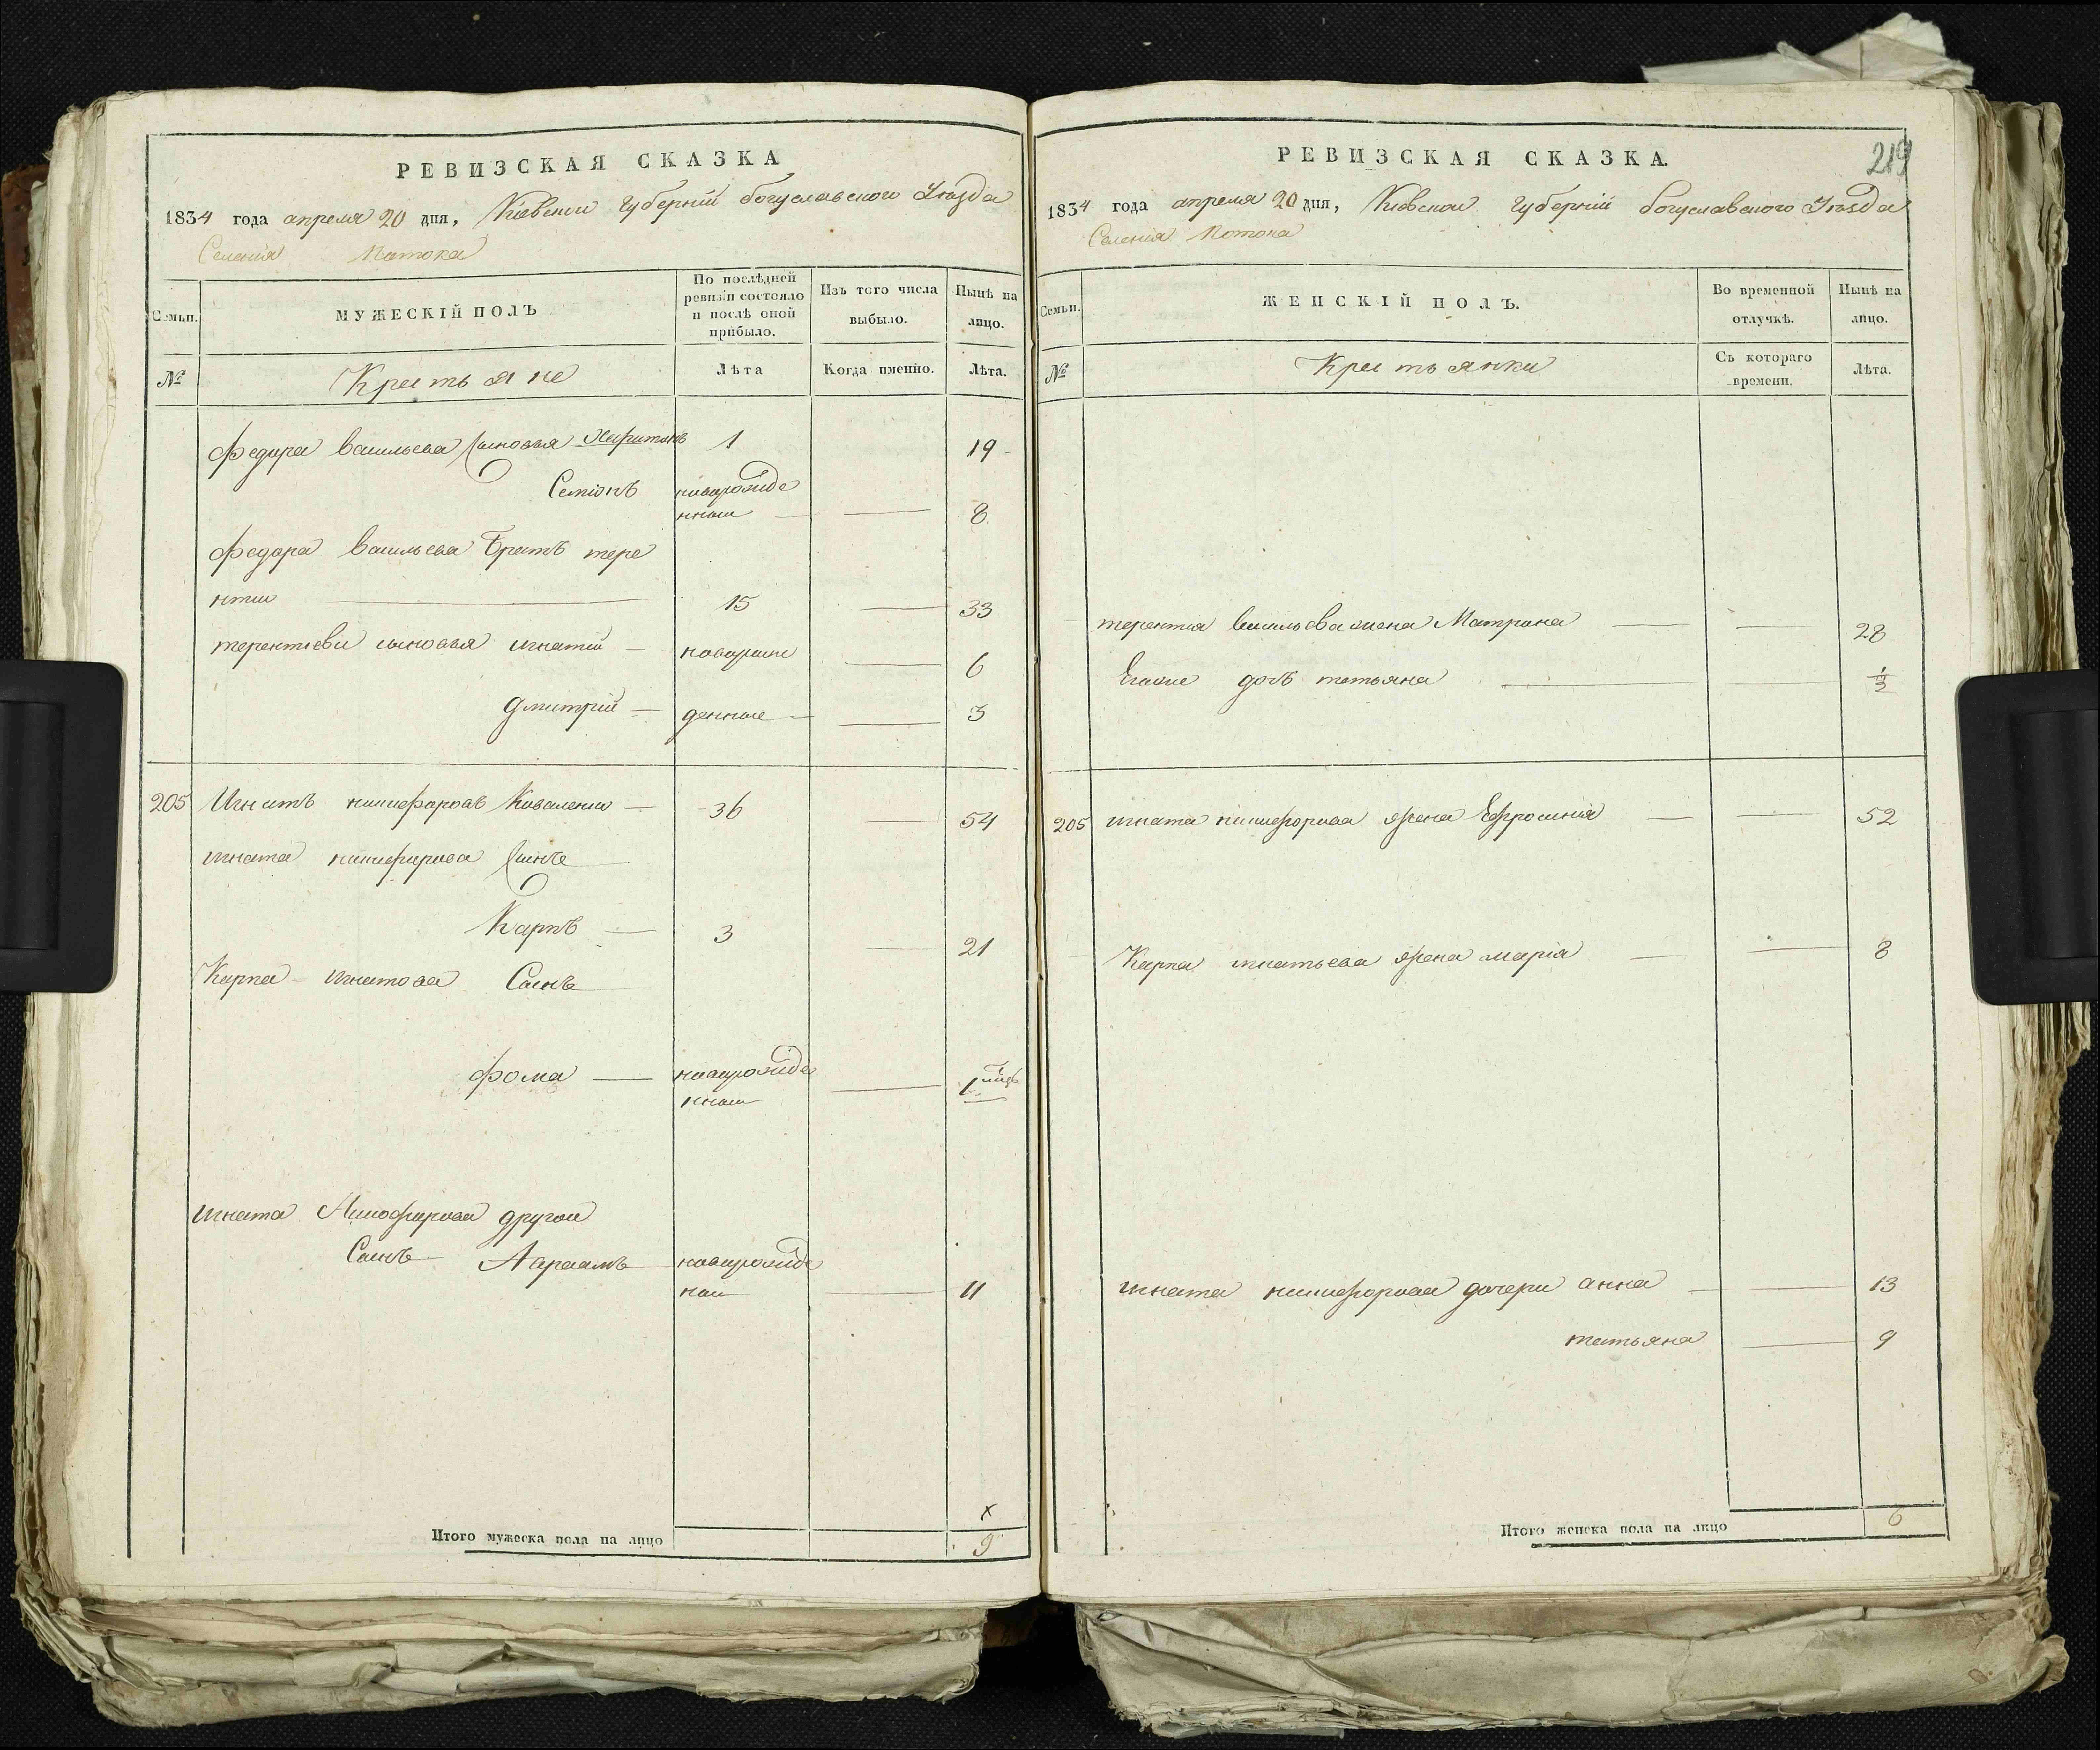 РЕВИЗСКАЯ СКАЗКА
1834 года апреля 20 дня, Кіевской Губерніи богуславского Уѣзда
Селенія Потока
Семьи.
МУЖЕСКІЙ ПОЛЪ
По послѣдней ревизіи состояло и послѣ оной прибыло.
Изъ того числа выбыло.
Нынѣ на лицо.
№
Крестьяне
Лѣта
Когда именно.
Лѣта.
Федора васильева сыновья Харитонъ 1 19
Семіонъ новорожде
нный 8
Федора васильева братъ тере
нтии 15 33
терентіеви сыновья игнатій новорож 6
дмитрій денные 3
205 Игнатъ никифоровъ Коваленко 36 54
игната никифорова сынъ
Карпъ 3 21
Карпа игнатова Сынъ
Фома новорожде
нный 1
игната никифорова другой
Сынъ Авраамъ новорожде
ный 11
х
Итого мужеска пола на лицо 9
РЕВИЗСКАЯ СКАЗКА.
219
1834 года апреля 20 дня, Кіевской Губерніи богуславского Уѣзда
Селенія Потока
Семьи.
ЖЕНСКІЙ ПОЛЪ.
Во временной отлучкѣ.
Нынѣ на лицо.
№
Крестьянки
Съ котораго времени.
Лѣта.
терентія васильева жена Матрона 28
дочь татьяна 1/2
205 игната никифорова жена Ефросинія 52
Карпа игнатьева жена марія 8
игната никифорова дочери анна 13
татьяна 9
Итого женска пола на лицо 6